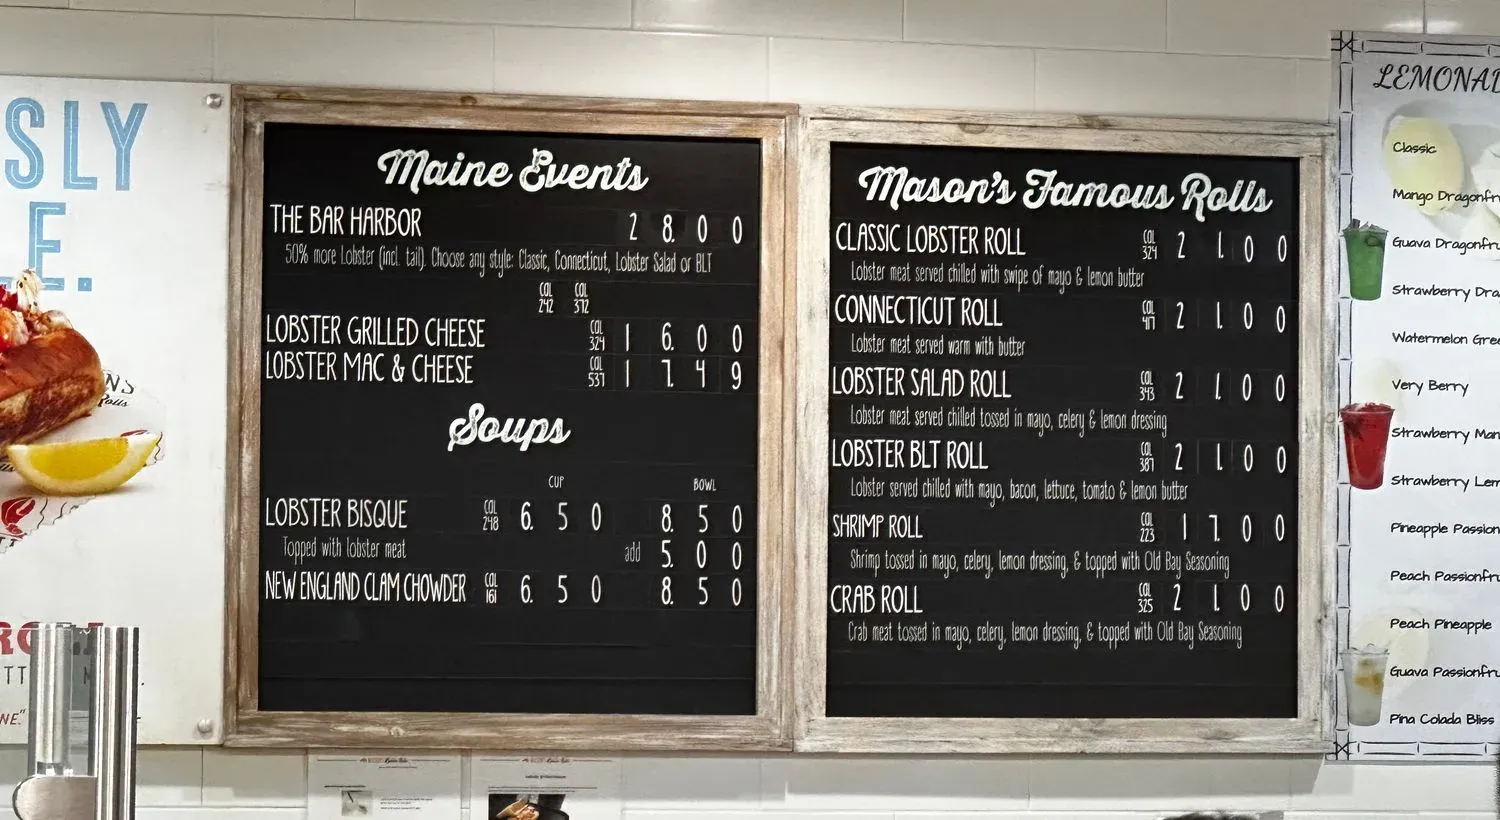 SLY
E.
Maine Events
THE BAR HARBOR 28.00
50% more Lobster (incl. tail). Choose any style: Classic, Connecticut, Lobster Salad or BLT
CAL 242 CAL 372
LOBSTER GRILLED CHEESE CAL 324 16.00
LOBSTER MAC & CHEESE CAL 537 17.49
Soups
CUP BOWL
LOBSTER BISQUE CAL 248 6.50 8.50
Topped with lobster meat add 5.00
NEW ENGLAND CLAM CHOWDER CAL 161 6.50 8.50
Mason's Famous Rolls
CLASSIC LOBSTER ROLL CAL 324 21.00
Lobster meat served chilled with swipe of mayo & lemon butter
CONNECTICUT ROLL CAL 417 21.00
Lobster meat served warm with butter
LOBSTER SALAD ROLL CAL 343 21.00
Lobster meat served chilled tossed in mayo, celery & lemon dressing
LOBSTER BLT ROLL CAL 387 21.00
Lobster served chilled with mayo, bacon, lettuce, tomato & lemon butter
SHRIMP ROLL CAL 223 17.00
Shrimp tossed in mayo, celery, lemon dressing, & topped with Old Bay Seasoning
CRAB ROLL CAL 325 21.00
Crab meat tossed in mayo, celery, lemon dressing, & topped with Old Bay Seasoning
LEMONAD
Classic
Mango Dragonfru
Guava Dragonfru
Strawberry Dra
Watermelon Gree
Very Berry
Strawberry Man
Strawberry Lem
Pineapple Passion
Peach Passionfru
Peach Pineapple
Guava Passionfru
Pina Colada Bliss